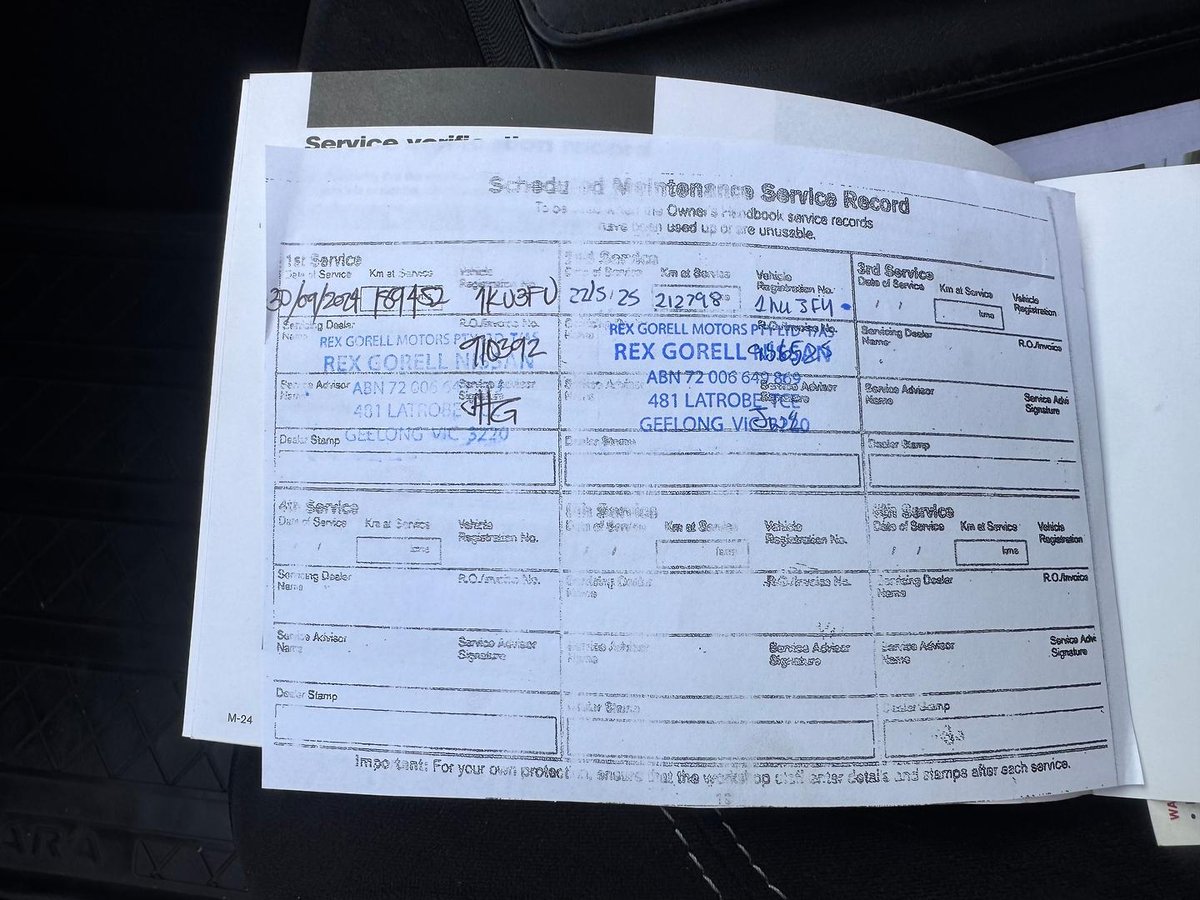 Service
Scheduled Maintenance Service Record
the Owner's Handbook service records
have been used up or are unusable.
1st Service
Date of Service Km at Service Vehicle
Registration
30/09/2024 189452 1KU3FU
Servicing Dealer R.O./Invoice No.
Name
REX GORELL MOTORS
910392
REX GORELL NISSAN
Service Advisor Service Advisor
Name Signature
ABN 72 006
481 LATROBE
GEELONG VIC 3220
Dealer Stamp
Service
Date of Service Km at Service Vehicle
Registration No.
22/5/25 212798
REX GORELL MOTORS PTY LTD T/AS
REX GORELL NISSAN
ABN 72 006 649 869
Service Advisor
Signature
481 LATROBE TCE
GEELONG VIC 3220
Dealer Stamp
3rd Service
Date of Service Km at Service Vehicle
Registration
/ / kms
Servicing Dealer R.O./Invoice
Name
Service Advisor Service Advi
Name Signature
Dealer Stamp
4th Service
Date of Service Km at Service Vehicle
Registration No.
/ / kms
Servicing Dealer R.O./Invoice No.
Name
Service Advisor Service Advisor
Name Signature
Dealer Stamp
Service
Date of Service Km at Service Vehicle
Registration No.
/ / kms
Servicing Dealer R.O./Invoice No.
Name
Service Advisor Service Advisor
Name Signature
Dealer Stamp
6th Service
Date of Service Km at Service Vehicle
Registration
/ / kms
Servicing Dealer R.O./Invoice
Name
Service Advisor Service Advi
Name Signature
Dealer Stamp
M-24
Important: For your own protection, ensure that the workshop staff enter details and stamps after each service.
ARA
WA